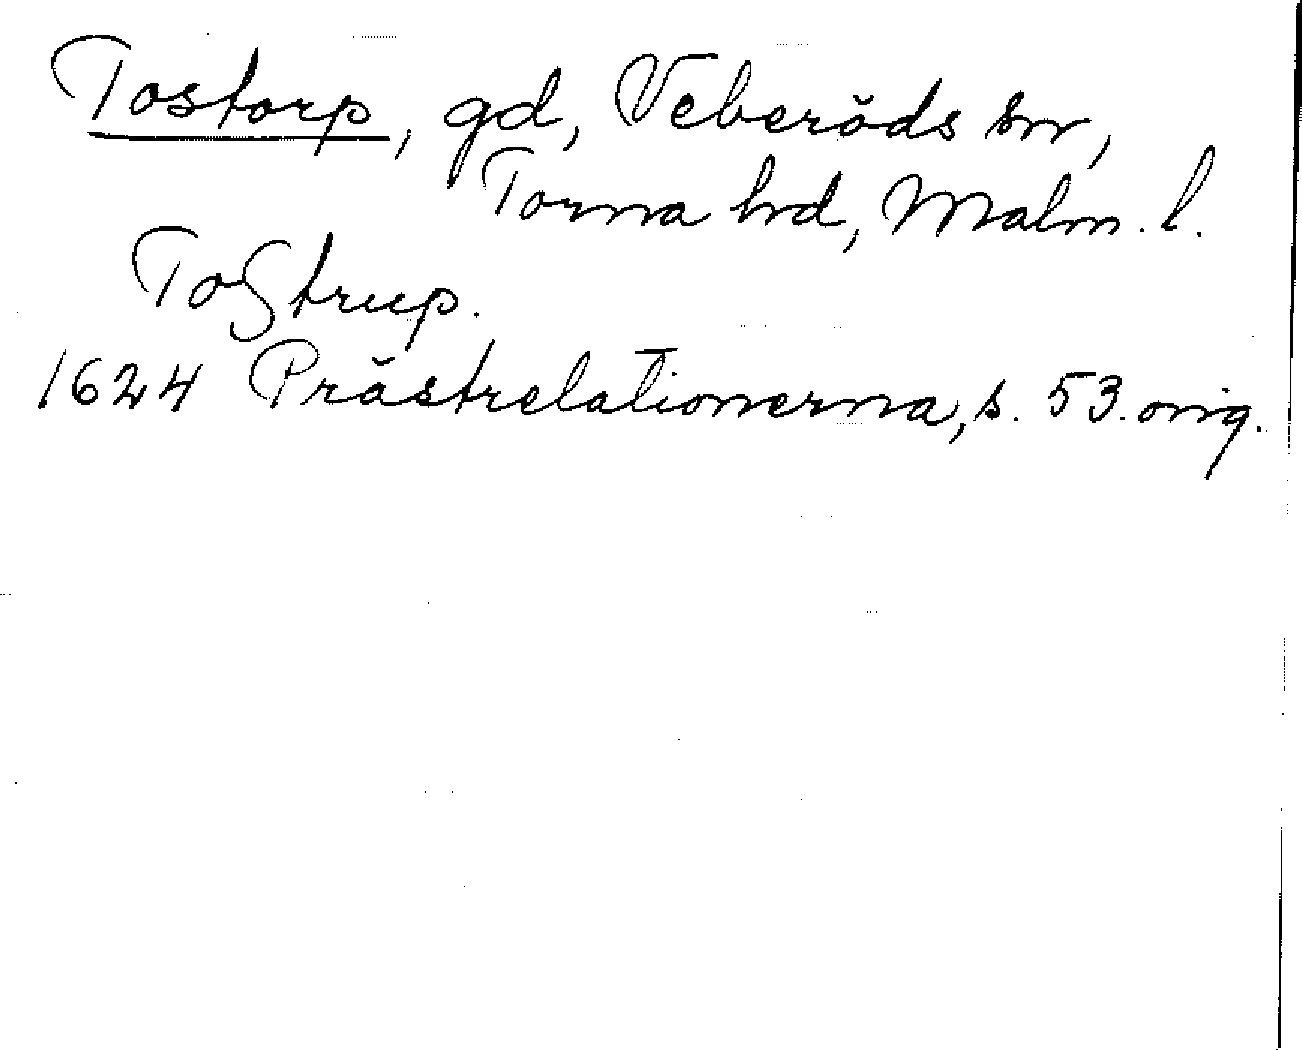 Tostorp, gd, Veberöds sn,
Torna hd, Malm. l.
Tostrup.
1624 Prästrelationerna, s. 53. orig.